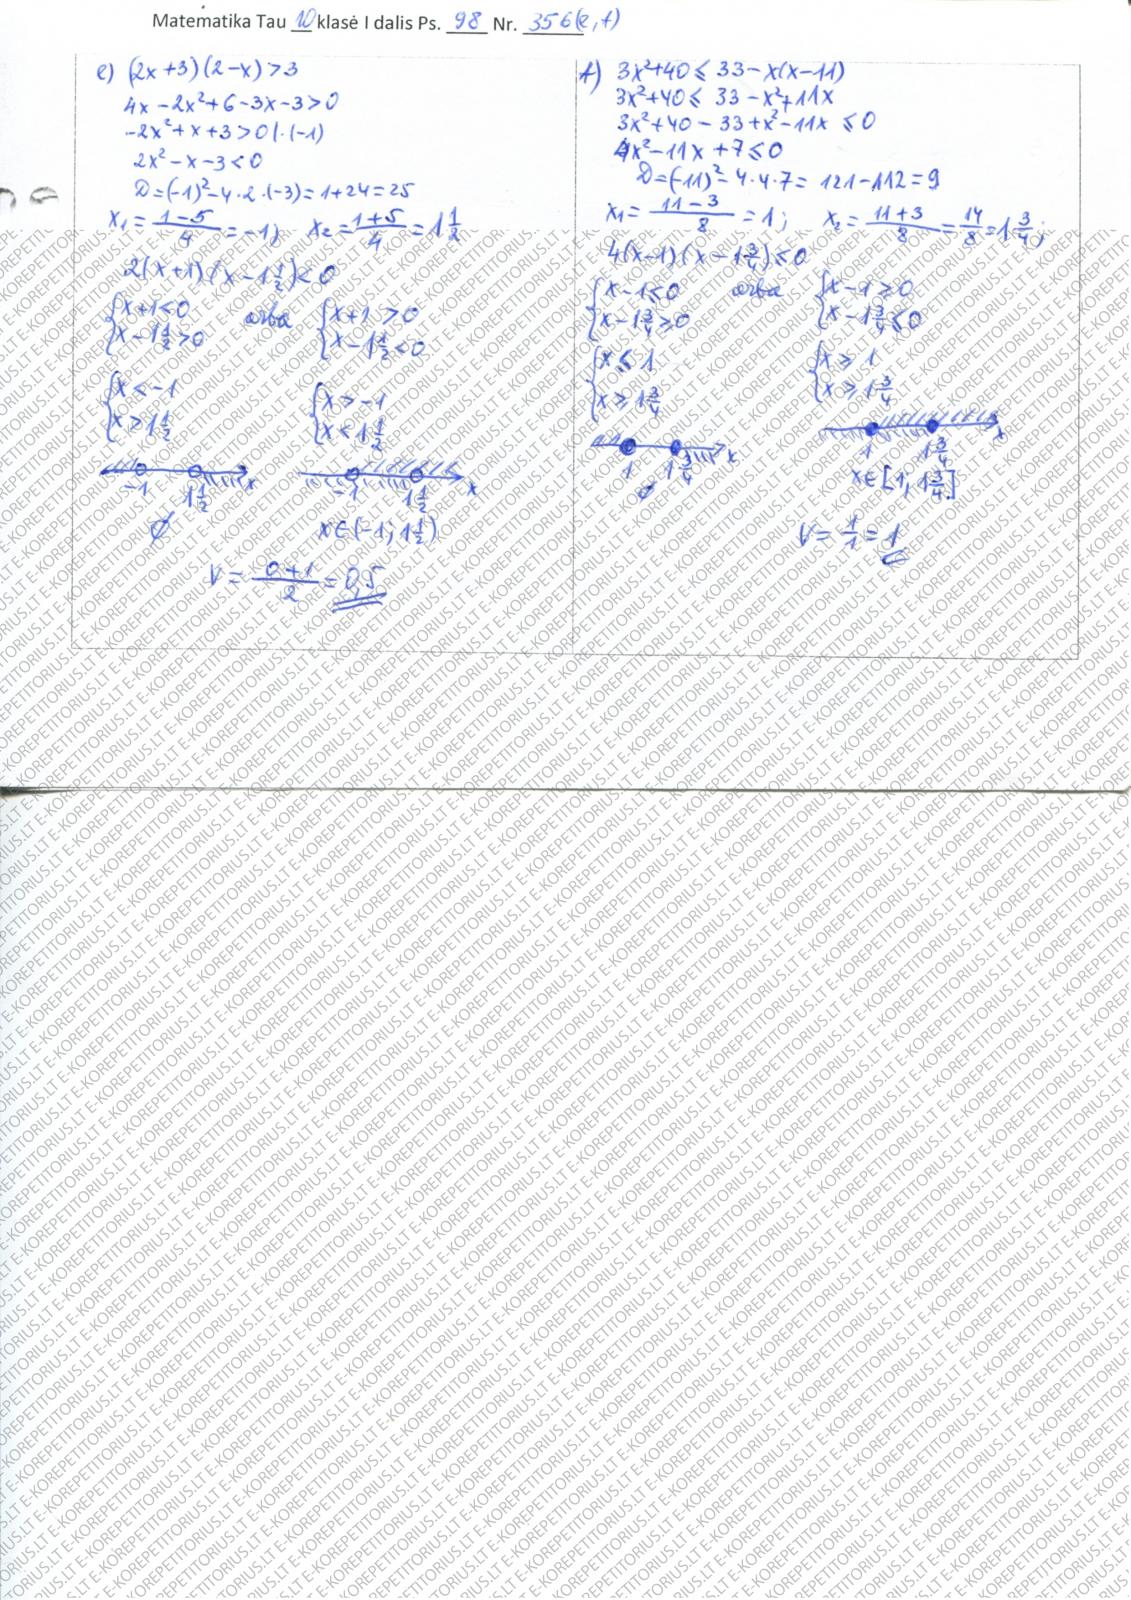 Matematika Tau 10 klasė I dalis Ps. 98 Nr. 356(e,f)
e) (2x+3)(2-x)>3
4x-2x²+6-3x-3>0
-2x²+x+3>0 |·(-1)
2x²-x-3<0
D=(-1)²-4·2·(-3)=1+24=25
x₁=(1-5)/4=-1; x₂=(1+5)/4=1 1/2
2(x+1)(x-1 1/2)<0
{x+1<0 arba {x+1>0
{x-1 1/2>0 {x-1 1/2<0
{x<-1 {x>-1
{x>1 1/2 {x<1 1/2
-1 1 1/2 x -1 1 1/2 x
∅ x∈(-1; 1 1/2)
V=(0+1)/2=0,5
f) 3x²+40≤33-x(x-11)
3x²+40≤33-x²+11x
3x²+40-33+x²-11x≤0
4x²-11x+7≤0
D=(-11)²-4·4·7=121-112=9
x₁=(11-3)/8=1; x₂=(11+3)/8=14/8=1 3/4;
4(x-1)(x-1 3/4)≤0
{x-1≤0 arba {x-1≥0
{x-1 3/4≥0 {x-1 3/4≤0
{x≤1 {x≥1
{x≥1 3/4 {x≥1 3/4
1 1 3/4 x 1 1 3/4 x
∅ x∈[1; 1 3/4]
V=1/1=1
E-KOREPETITORIUS.LT